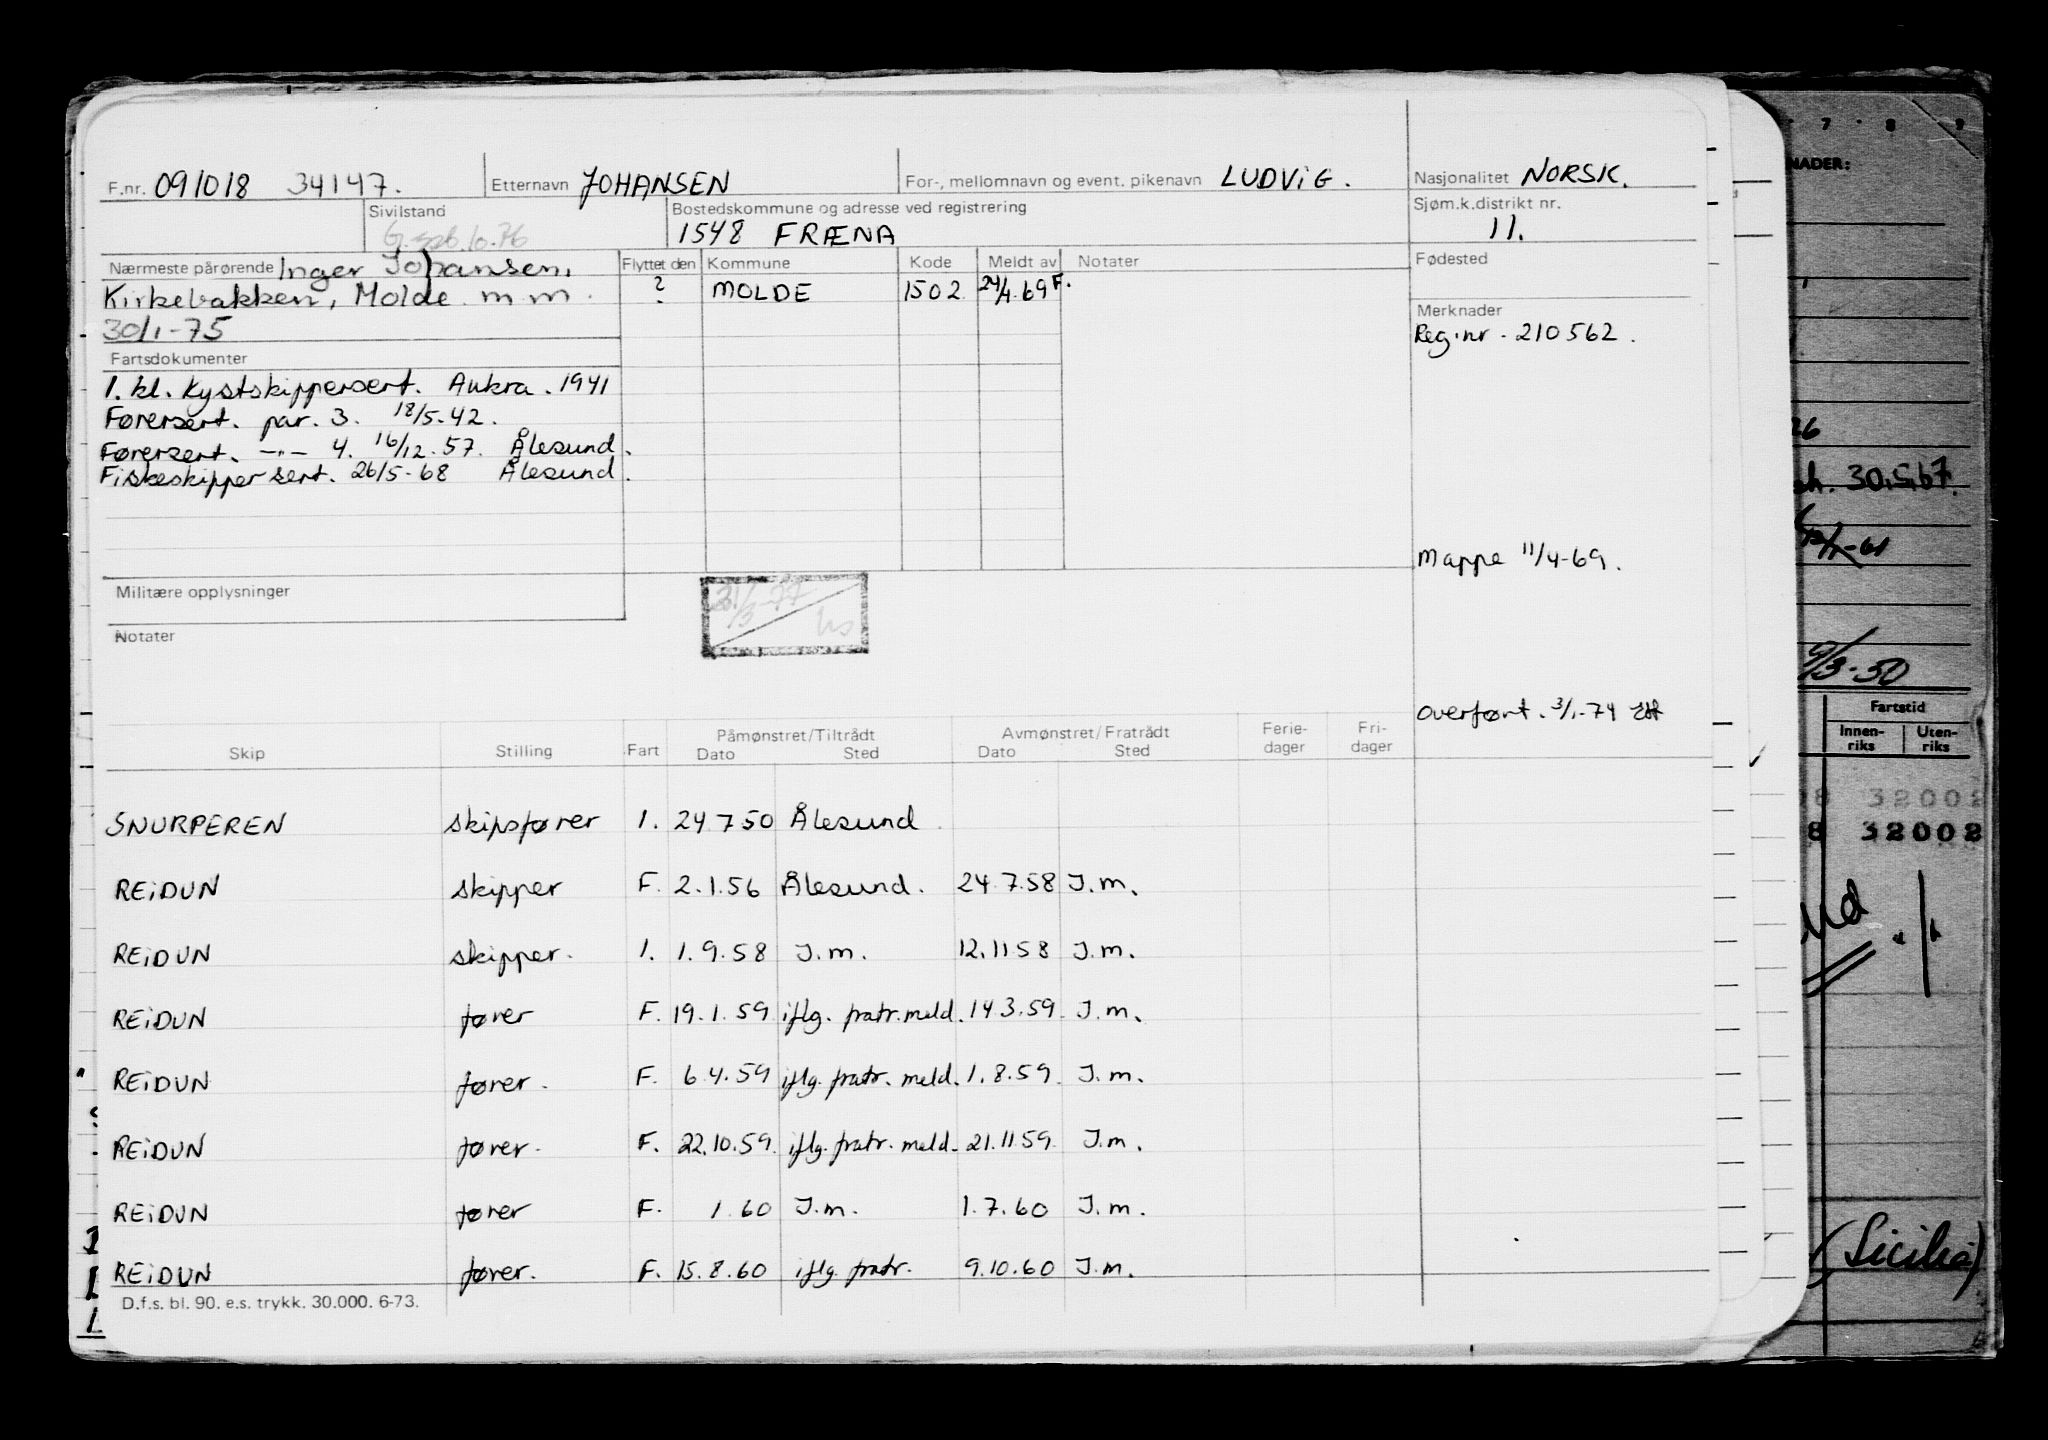 F.nr. 091018 34147. Etternavn JOHANSEN For-, mellomnavn og event. pikenavn LUDViG. Nasjonalitet NORSK.
Sivilstand Bostedskommune og adresse ved registrering Sjøm.k.distrikt nr.
1548 FRÆNA 11.
Nærmeste pårørende Inger Johansen, Flyttet den Kommune Kode Meldt av Notater Fødested
Kirkebakken, Molde m m. ? MOLDE 1502 24/4.69 F.
30/1-75 Merknader
Reg.nr. 210562.
Fartsdokumenter
1. kl. Kystskippersert. Aukra. 1941
Førersert. par. 3. 18/5.42.
Førersert. -"- 4. 16/12.57. Ålesund.
Fiskeskippersert. 26/5-68 Ålesund.
Mappe 11/4-69.
Militære opplysninger
31/3-77
Notater
Overført. 3/1-74
Skip Stilling Fart Påmønstret/Tiltrådt Dato Sted Avmønstret/Fratrådt Dato Sted Ferie-dager Fri-dager
SNURPEREN skipsfører 1. 24 7 50 Ålesund
REiDUN skipper F. 2.1.56 Ålesund. 24.7.58 J.m.
REiDUN skipper. 1. 1.9.58 J.m. 12.11 58 J.m.
REiDUN fører F. 19.1.59 iflg. fratr.meld. 14 3.59. J.m.
REiDUN fører. F. 6.4.59 iflg. fratr. meld. 1.8.59. J.m.
REiDUN fører. F. 22.10.59. iflg. fratr. meld. 21.11 59. J.m.
REiDUN fører F. 1.60 J.m. 1.7.60 J.m.
REiDUN fører. F. 15.8.60 iflg. fratr. 9.10.60 J.m.
D.f.s. bl. 90. e.s. trykk. 30.000. 6-73.
7 8 9
NADER:
26
30.5.67.
9/3-50
Fartstid
Innen-riks Uten-riks
8 32002
8 32002
(Sicilia)